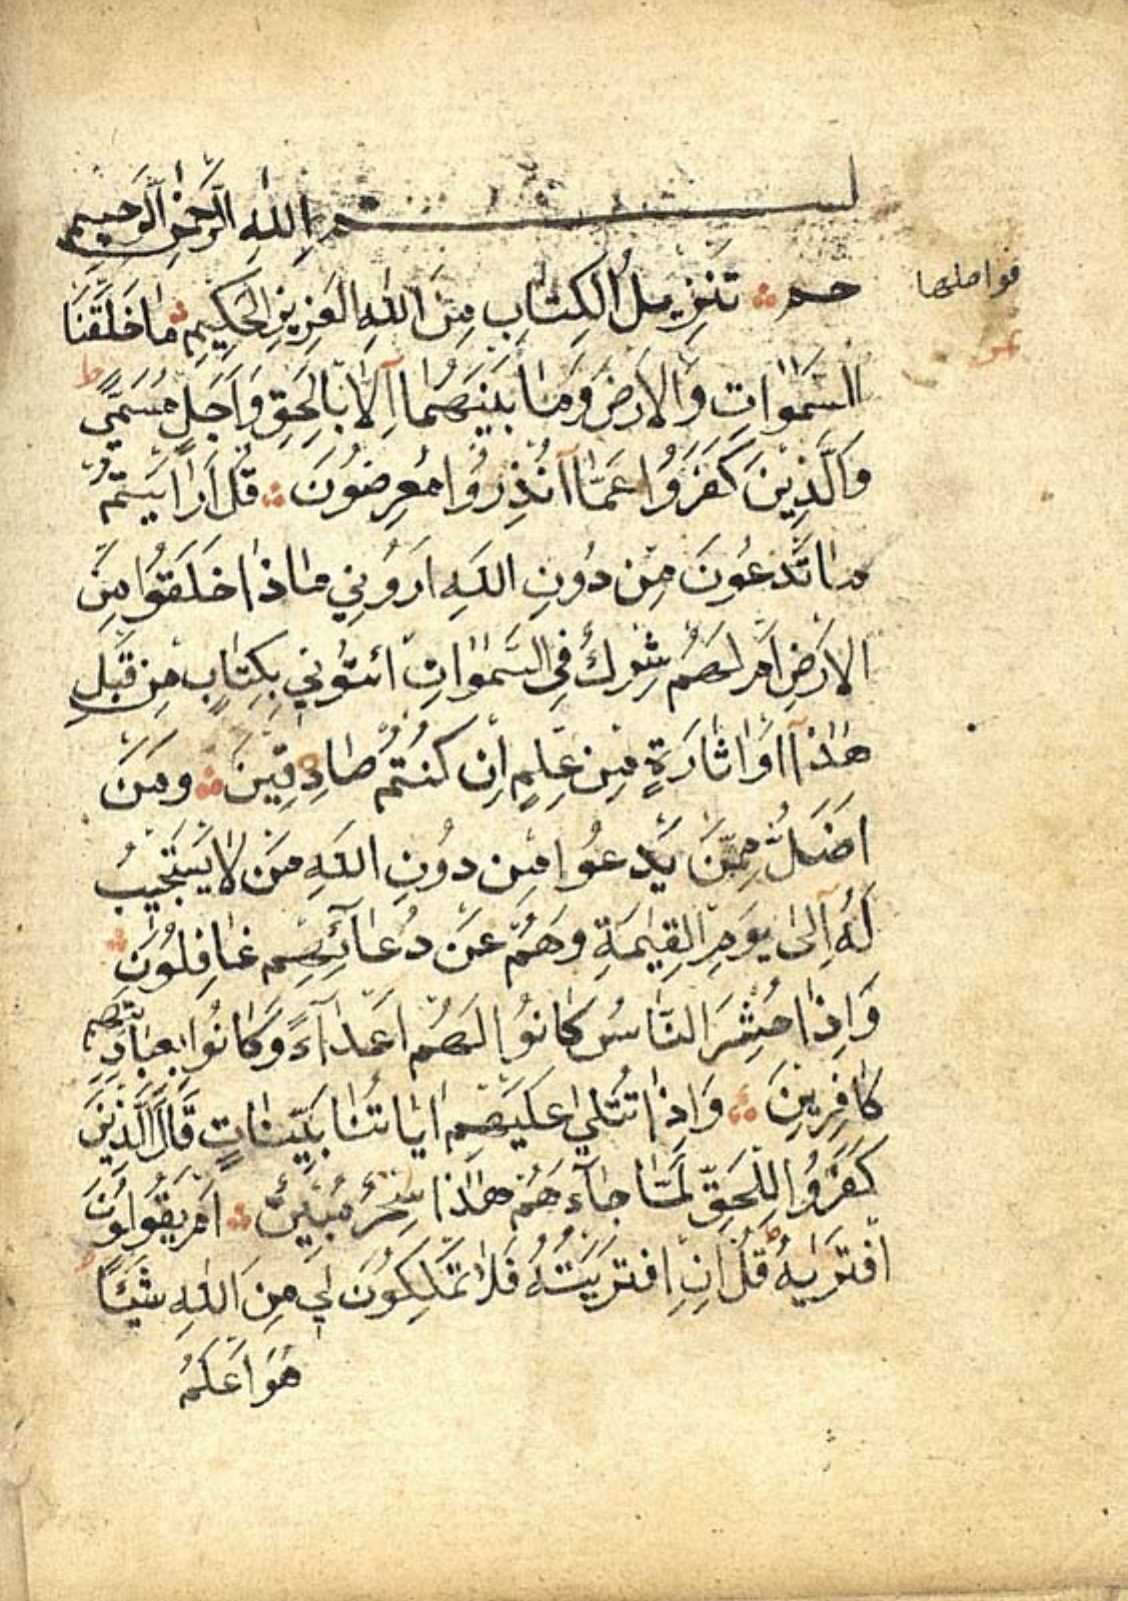 بسم اللهِ الرَّحمٰنِ الرَّحيمِ
حم تَنْزِيلُ الْكِتَابِ مِنَ اللهِ الْعَزِيزِ الْحَكِيمِ مَا خَلَقْنَا
فواصلها
نمر
السَّمٰوَاتِ وَالْاَرْضَ وَمَا بَيْنَهُمَا اِلَّا بِالْحَقِّ وَاَجَلٍ مُسَمًّى ط
وَالَّذِينَ كَفَرُوا عَمَّا اُنْذِرُوا مُعْرِضُونَ قُلْ اَرَاَيْتُمْ
مَا تَدْعُونَ مِنْ دُونِ اللهِ اَرُونِي مَاذَا خَلَقُوا مِنَ
الْاَرْضِ اَمْ لَهُمْ شِرْكٌ فِي السَّمٰوَاتِ ائْتُونِي بِكِتَابٍ مِنْ قَبْلِ
هٰذَا اَوْ اَثَارَةٍ مِنْ عِلْمٍ اِنْ كُنْتُمْ صَادِقِينَ وَمَنْ
اَضَلُّ مِمَّنْ يَدْعُوا مِنْ دُونِ اللهِ مَنْ لَا يَسْتَجِيبُ
لَهُ اِلٰى يَوْمِ الْقِيٰمَةِ وَهُمْ عَنْ دُعَائِهِمْ غَافِلُونَ
وَاِذَا حُشِرَ النَّاسُ كَانُوا لَهُمْ اَعْدَاءً وَكَانُوا بِعِبَادَتِهِمْ
كَافِرِينَ وَاِذَا تُتْلٰى عَلَيْهِمْ اٰيَاتُنَا بَيِّنَاتٍ قَالَ الَّذِينَ
كَفَرُوا لِلْحَقِّ لَمَّا جَاءَهُمْ هٰذَا سِحْرٌ مُبِينٌ اَمْ يَقُولُونَ
افْتَرٰيهُ ط قُلْ اِنِ افْتَرَيْتُهُ فَلَا تَمْلِكُونَ لِي مِنَ اللهِ شَيْئًا ط
هُوَ اَعْلَمُ